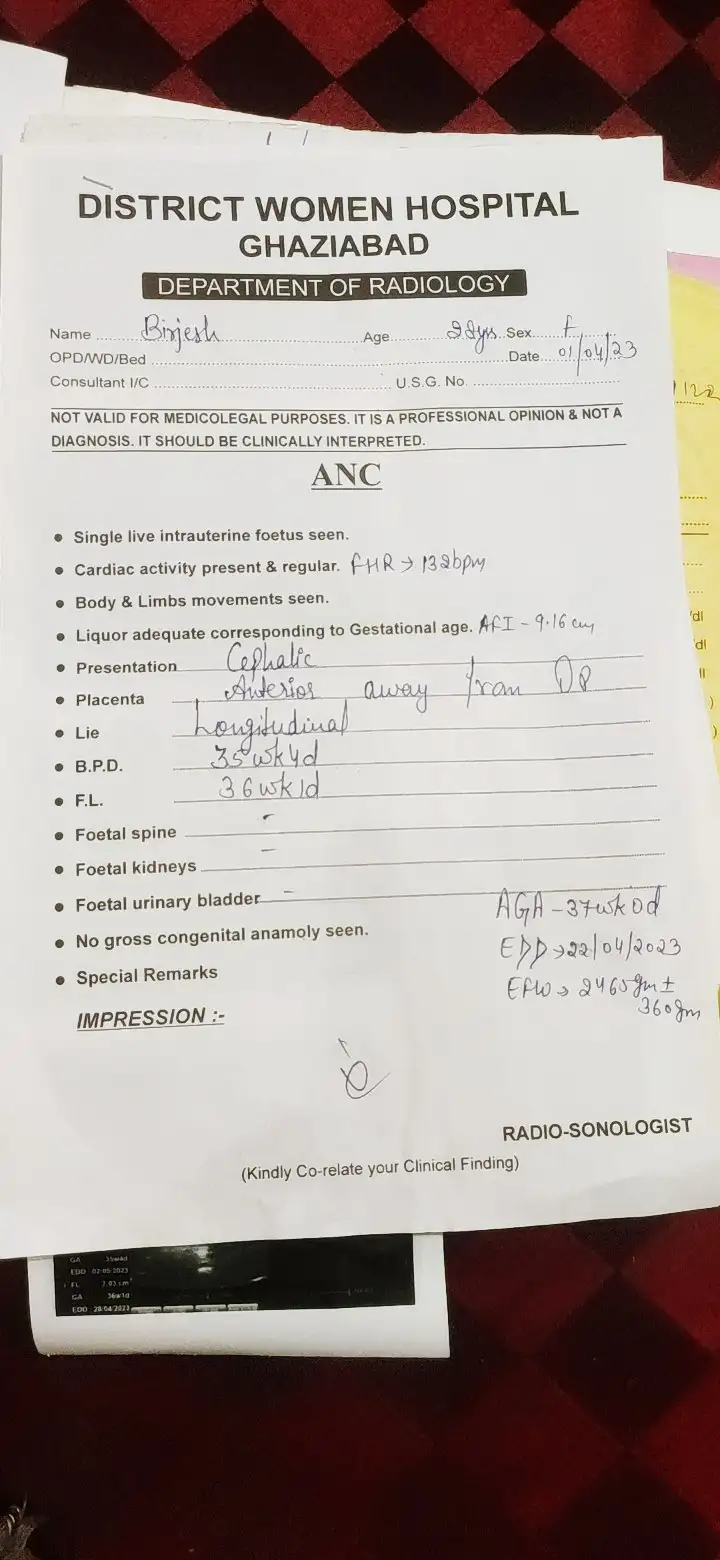 DISTRICT WOMEN HOSPITAL
GHAZIABAD
DEPARTMENT OF RADIOLOGY
Name Birjesh Age 22yrs Sex F
OPD/WD/Bed Date 01/04/23
Consultant I/C U.S.G. No.
NOT VALID FOR MEDICOLEGAL PURPOSES. IT IS A PROFESSIONAL OPINION & NOT A
DIAGNOSIS. IT SHOULD BE CLINICALLY INTERPRETED.
ANC
• Single live intrauterine foetus seen.
• Cardiac activity present & regular. FHR → 132bpm
• Body & Limbs movements seen.
• Liquor adequate corresponding to Gestational age. AFI - 9.16 cm
• Presentation Cephalic
• Placenta Anterior away from
• Lie Longitudinal
• B.P.D. 35wk4d
• F.L. 36wk1d
• Foetal spine -
• Foetal kidneys -
• Foetal urinary bladder -
• No gross congenital anamoly seen.
• Special Remarks
AGA - 37wk0d
EDD → 22/04/2023
EFW → 2465gm ±
360gm
IMPRESSION :-
RADIO-SONOLOGIST
(Kindly Co-relate your Clinical Finding)
GA 35w4d
EDD 02/05/2023
FL 7.03 cm
GA 36w1d
EDD 28/04/2023